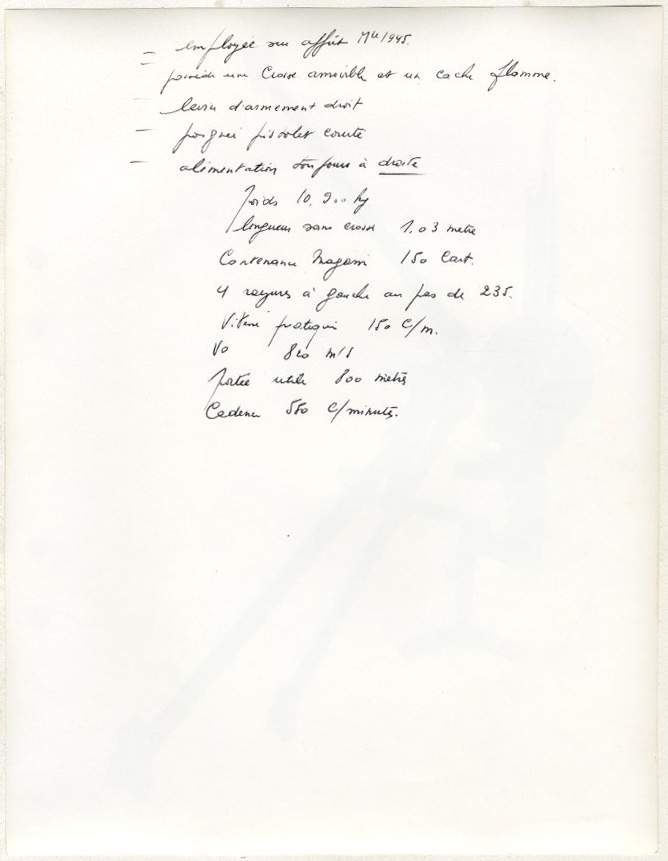 — employée sur affût Mle 1945.
— possède une Crosse amovible et un cache flamme.
— levier d'armement droit
— poignée pistolet courte
— alimentation toujours à droite
Poids 10,900 kg
longueur sans crosse 1.03 metre
Contenance Magasin 150 Cart.
4 rayures à gauche au pas de 235.
Vitesse pratique 150 C/m.
Vo 820 m/s
Portée utile 800 metres
Cadence 550 C/minutes.